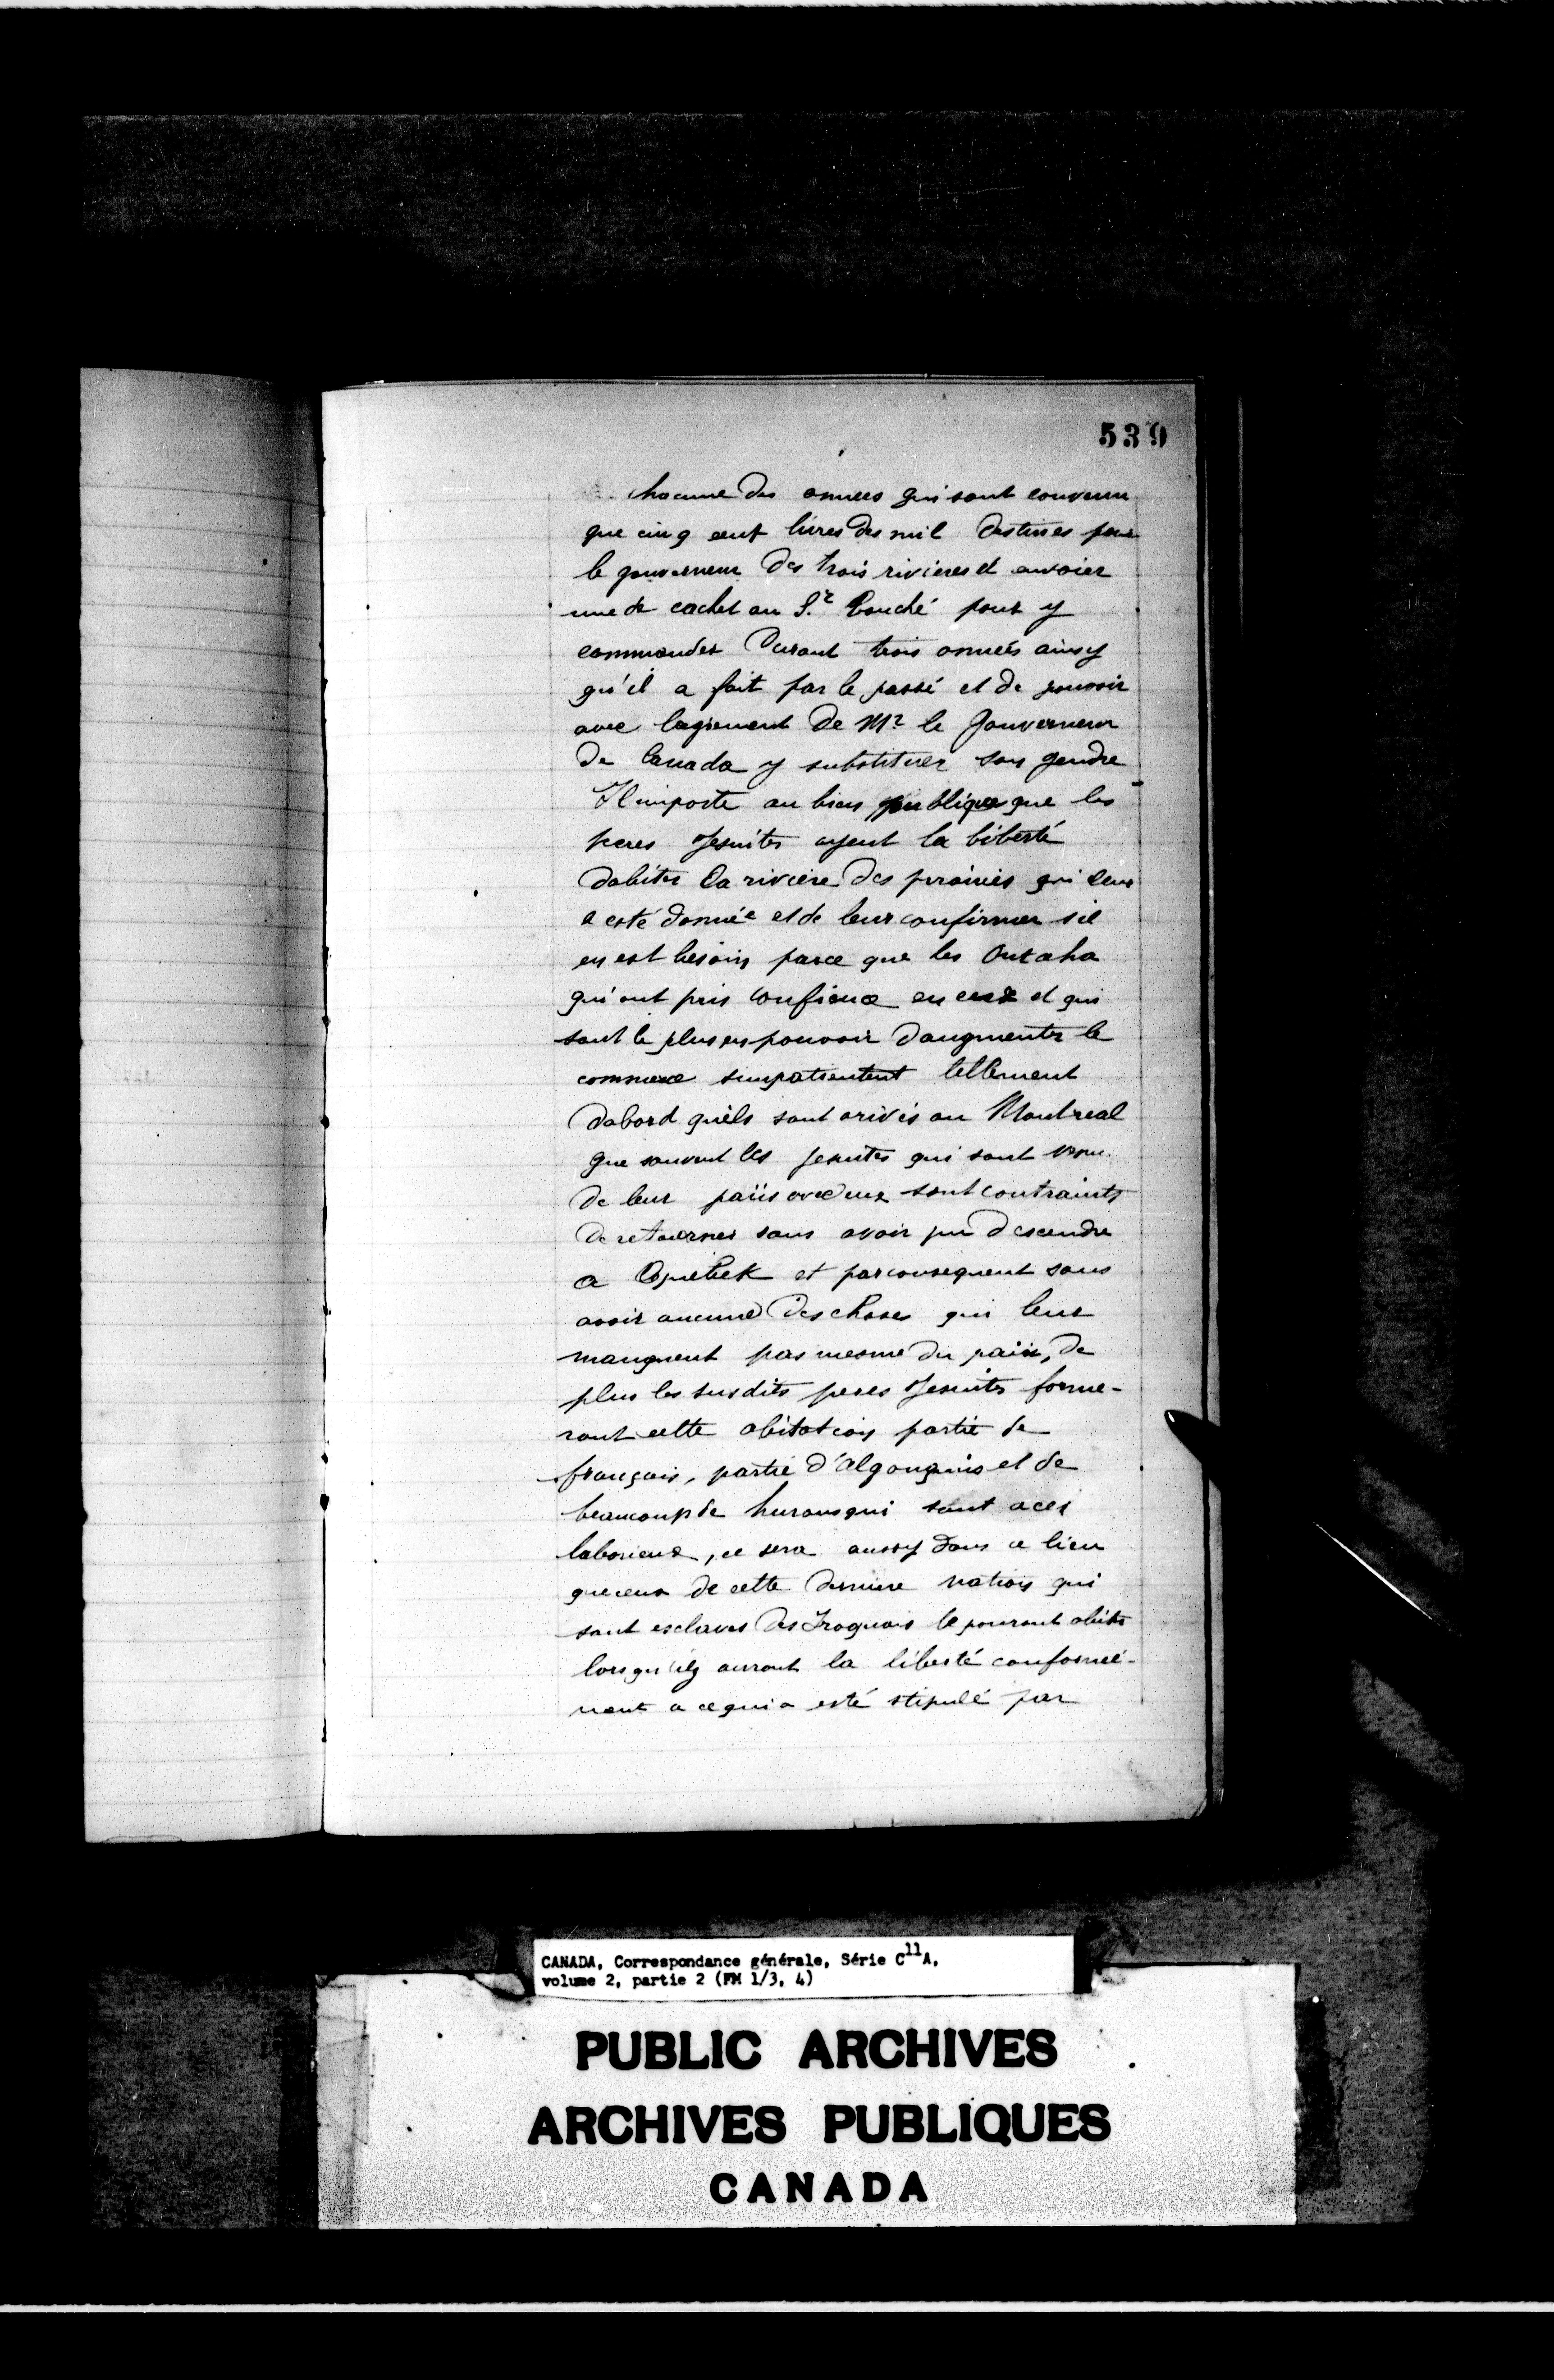 539
chacune des années qui sont convenu
que cinq cent livres des mil destines pour
le gouverneur des trois rivieres et envoier
une de cachet au S.r Bouché pour y
commander Durant trois années ainsy
qu'il a fait par le passé et de pouvoir
avec lagrement de Mr le Gouverneur
De Canada y substituer son gendre
Il importe au bien publique que les
peres Jesuites ayent la liberté
dabiter la riviere des prairies qui leur
a esté donnée et de leur confirmer s'il
en est besoin parce que les Outaha
qui ont pris confience en eux et qui
sont le plus en pouvoir daugmenter le
commerce simpatientent tellement
dabord quils sont arivés au Montreal
que souvent les Jesuites qui sont venu
de leur païis avec eux sont contraints
de retourner sans avoir pu descendre
a Quebek et par consequent sans
avoir aucune des choses qui leur
manquent pas mesme du pain, de
plus les susdits peres Jesuites forme-
ront cette abitation partie de
français, partie d'algonquins et de
beaucoup de hurons qui sont aces
laborieux, ce sera aussy dans ce lieu
que ceux de cette derniere nation qui
sont esclaves des Iroquois le pouront abiter
lorsqu'ilz auront la liberté conformé-
ment a ce qui a esté stipulé par
CANADA, Correspondance générale, Série C11A,
volume 2, partie 2 (FM 1/3, 4)
PUBLIC ARCHIVES
ARCHIVES PUBLIQUES
CANADA